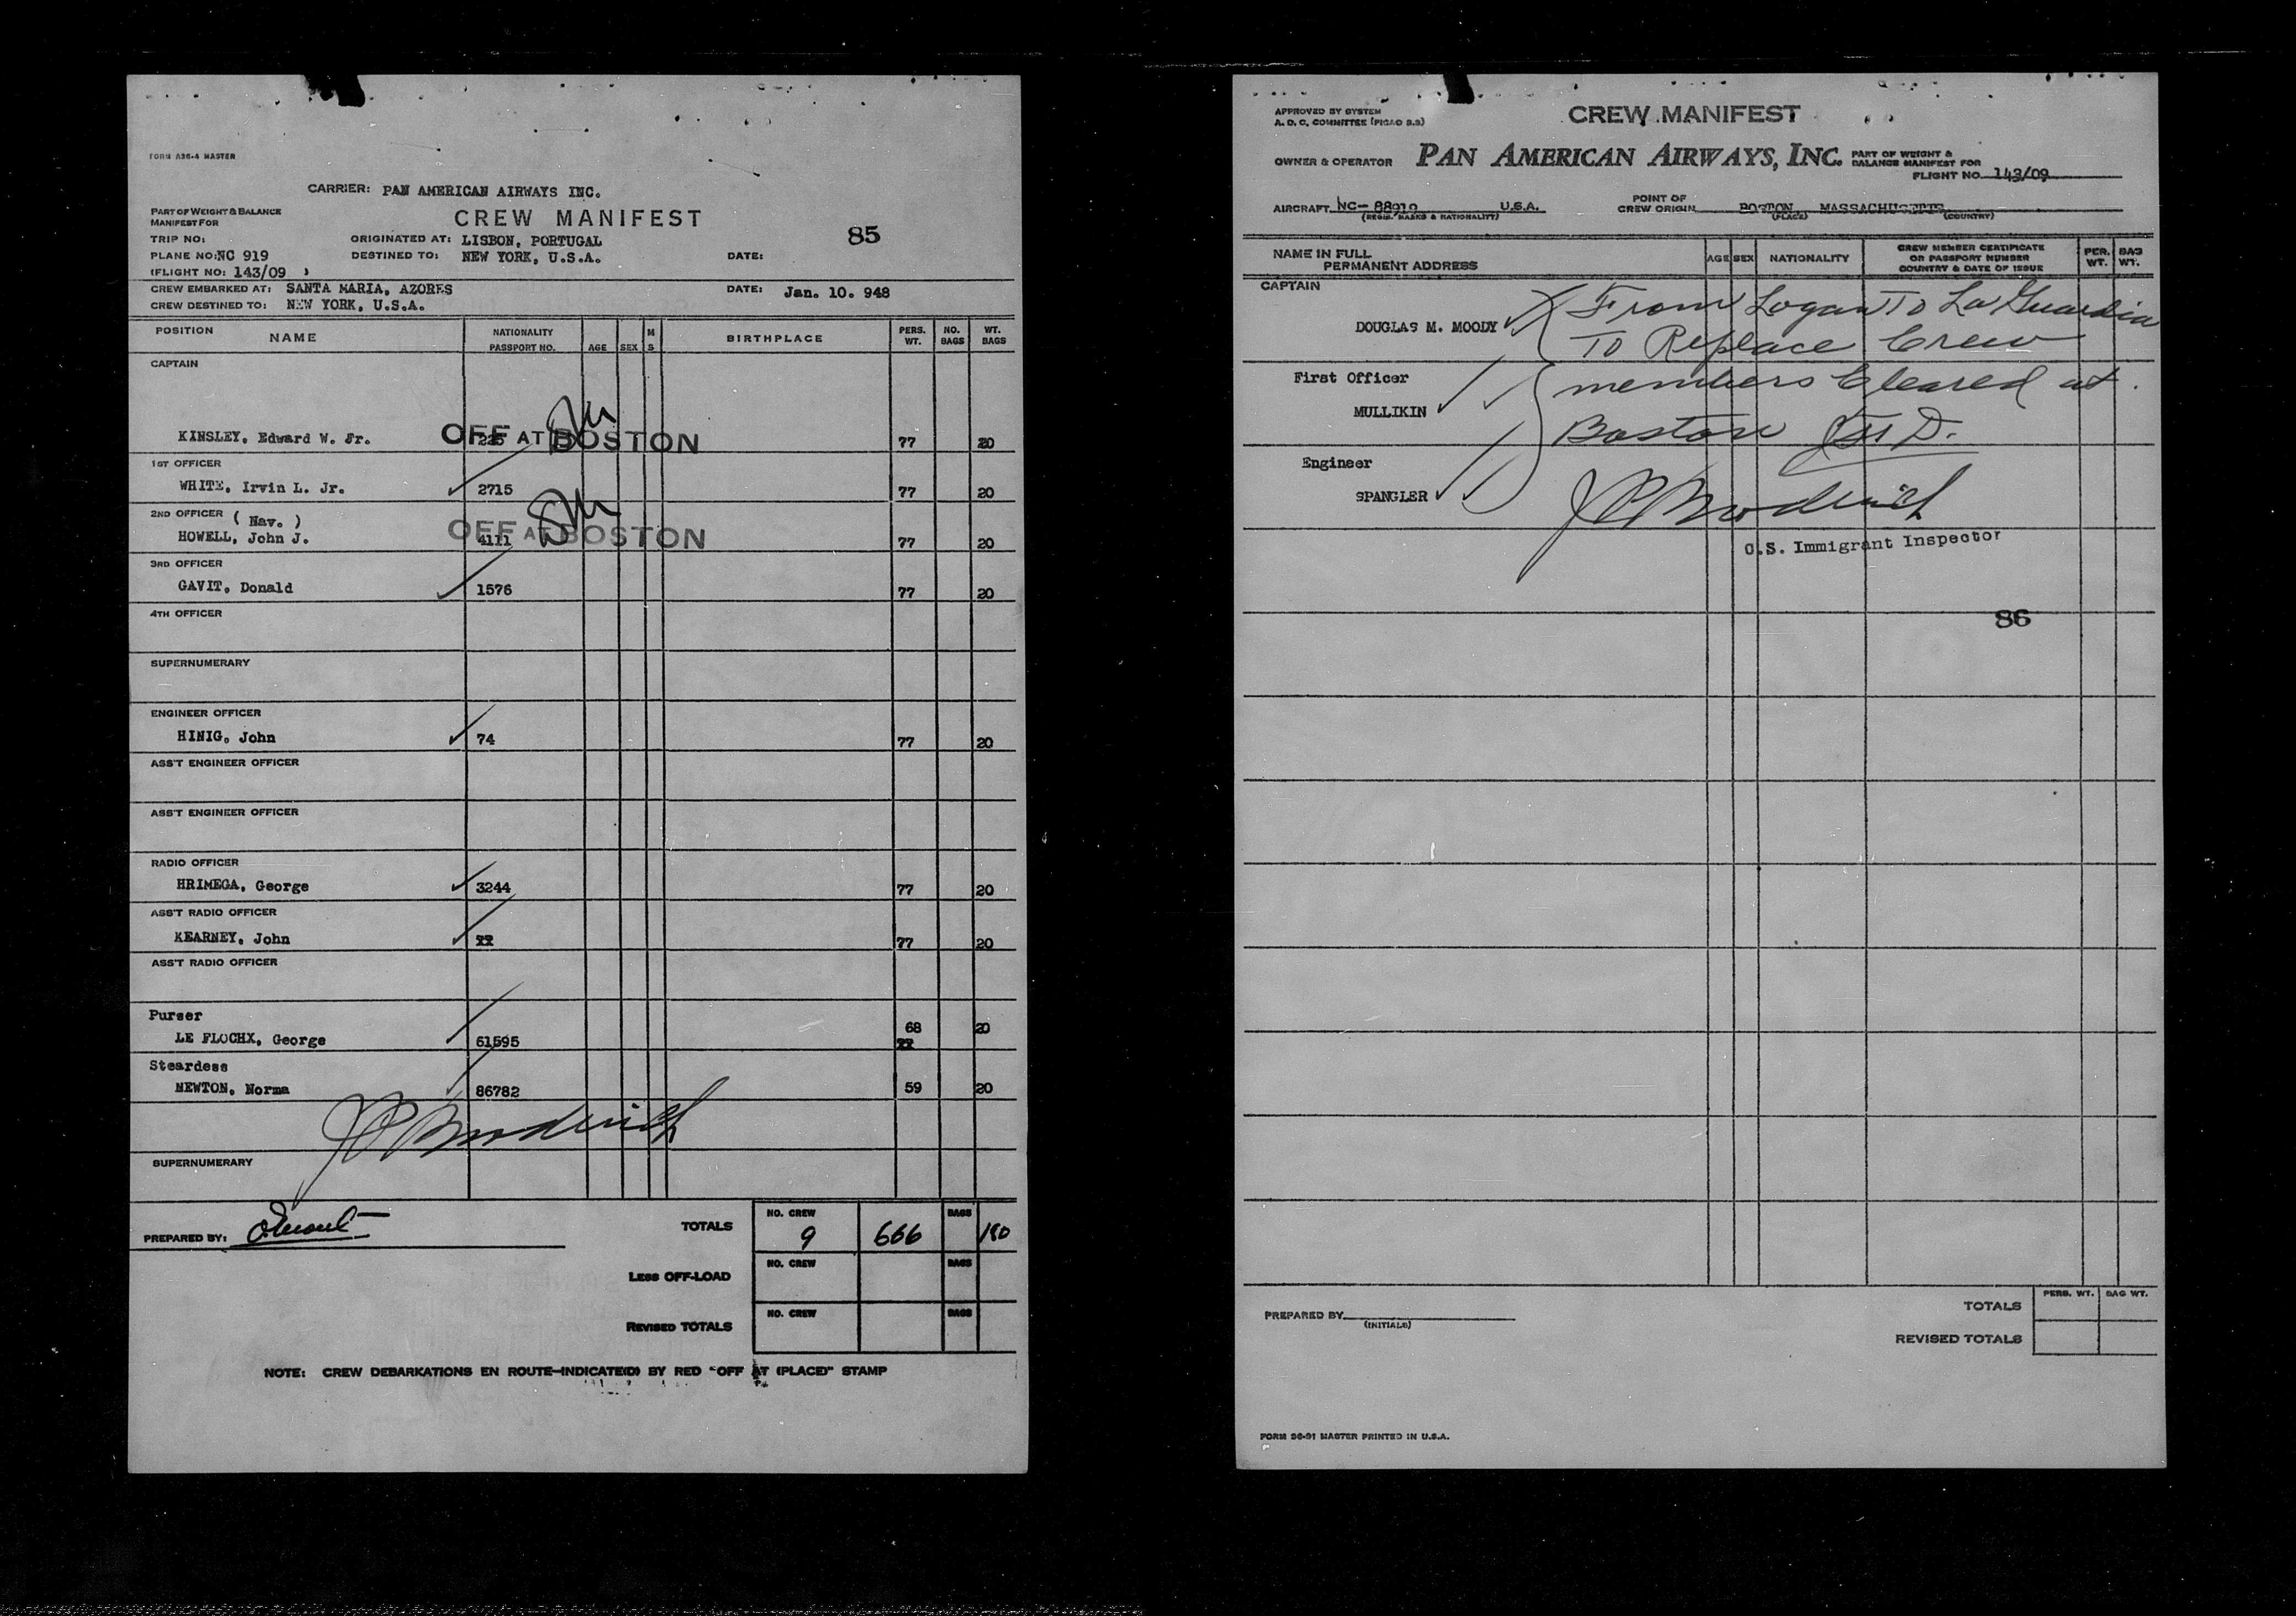 FORM A36-4 MASTER
CARRIER: PAN AMERICAN AIRWAYS INC.
PART OF WEIGHT & BALANCE
MANIFEST FOR
CREW MANIFEST
85
TRIP NO:
ORIGINATED AT: LISBON, PORTUGAL
PLANE NO: NC 919
DESTINED TO: NEW YORK, U.S.A.
DATE:
(FLIGHT NO: 143/09 )
CREW EMBARKED AT: SANTA MARIA, AZORES
DATE: Jan. 10. 948
CREW DESTINED TO: NEW YORK, U.S.A.
POSITION NAME NATIONALITY PASSPORT NO. AGE SEX M S BIRTHPLACE PERS. WT. NO. BAGS WT. BAGS
CAPTAIN
KINSLEY, Edward W. Jr. OFF AT BOSTON 77 20
1ST OFFICER
WHITE, Irvin L. Jr. 2715 77 20
2ND OFFICER ( Nav. )
HOWELL, John J. 4111 OFF AT BOSTON 77 20
3RD OFFICER
GAVIT, Donald 1576 77 20
4TH OFFICER
SUPERNUMERARY
ENGINEER OFFICER
HINIG, John 74 77 20
ASS'T ENGINEER OFFICER
ASS'T ENGINEER OFFICER
RADIO OFFICER
HRIMEGA, George 3244 77 20
ASS'T RADIO OFFICER
KEARNEY, John 77 20
ASS'T RADIO OFFICER
Purser
LE FLOCHX, George 61595 68 20
Steardess
NEWTON, Norma 86782 59 20
SUPERNUMERARY
PREPARED BY:
TOTALS NO. CREW 9 666 BAGS 180
LESS OFF-LOAD NO. CREW BAGS
REVISED TOTALS NO. CREW BAGS
NOTE: CREW DEBARKATIONS EN ROUTE-INDICATE(D) BY RED "OFF AT (PLACE)" STAMP
APPROVED BY SYSTEM
A. D. C. COMMITTEE (PICAO 2.3)
CREW MANIFEST
OWNER & OPERATOR PAN AMERICAN AIRWAYS, INC. PART OF WEIGHT &
BALANCE MANIFEST FOR
FLIGHT NO. 143/09
AIRCRAFT NC-88919 U.S.A.
(REGIS. MARKS & NATIONALITY)
POINT OF
CREW ORIGIN BOSTON MASSACHUSETTS
(PLACE) (COUNTRY)
NAME IN FULL
PERMANENT ADDRESS
AGE SEX NATIONALITY
CREW MEMBER CERTIFICATE
OR PASSPORT NUMBER
COUNTRY & DATE OF ISSUE
PER. WT. BAG WT.
CAPTAIN
DOUGLAS M. MOODY
From Logan To La Guardia
To Replace Crew
First Officer
MULLIKIN
members Cleared at
Boston
Engineer
SPANGLER
U.S. Immigrant Inspector
86
PREPARED BY
(INITIALS)
PERS. WT. BAG WT.
TOTALS
REVISED TOTALS
FORM 36-91 MASTER PRINTED IN U.S.A.